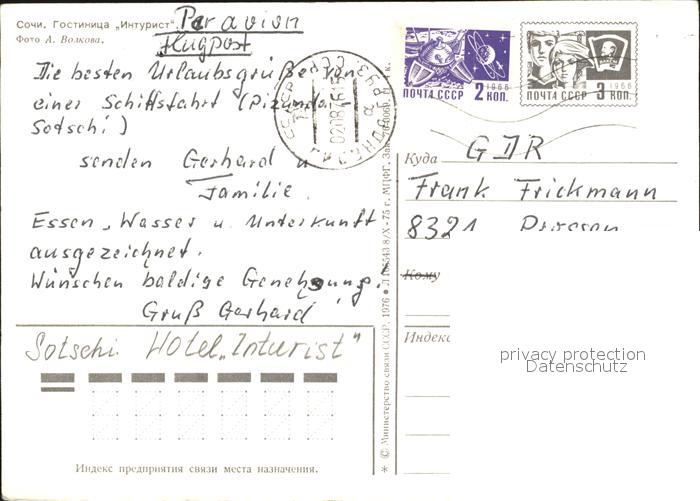 Сочи. Гостиница „Интурист".
Фото А. Волкова.
Par avion
Flugpost
Die besten Urlaubsgrüße von
einer Schiffsfahrt (Pizunda-
Sotschi)
senden Gerhard u
Familie.
Essen, Wasser u. Unterkunft
ausgezeichnet.
Wünschen baldige Genehsgung!
Gruß Gerhard
Sotschi Hotel „Inturist"
Индекс предприятия связи места назначения.
© Министерство связи СССР, 1976 ● Л 106543 8/X - 75 г. МПФГ. Зак.
1966
ПОЧТА СССР 2 КОП.
1966
ПОЧТА СССР 3 КОП.
Куда GDR
Frank Frickmann
8321
Кому
Индекс
privacy protection
Datenschutz